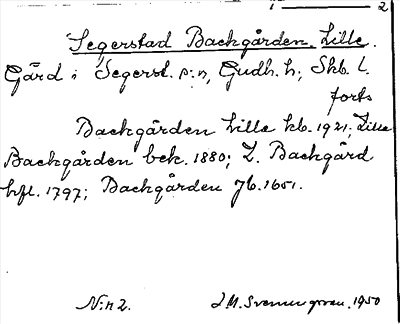 1 ——— 2
Segerstad Backgården, Lille.
Gård i Segerst. s:n, Gudh. h; Skb. l.
forts
Backgården Lille kb. 1921; Lilla
Backgården bek. 1880; L. Backgård
hfl. 1797; Backgården Jb. 1651.
N:r 2. J.M. 1950